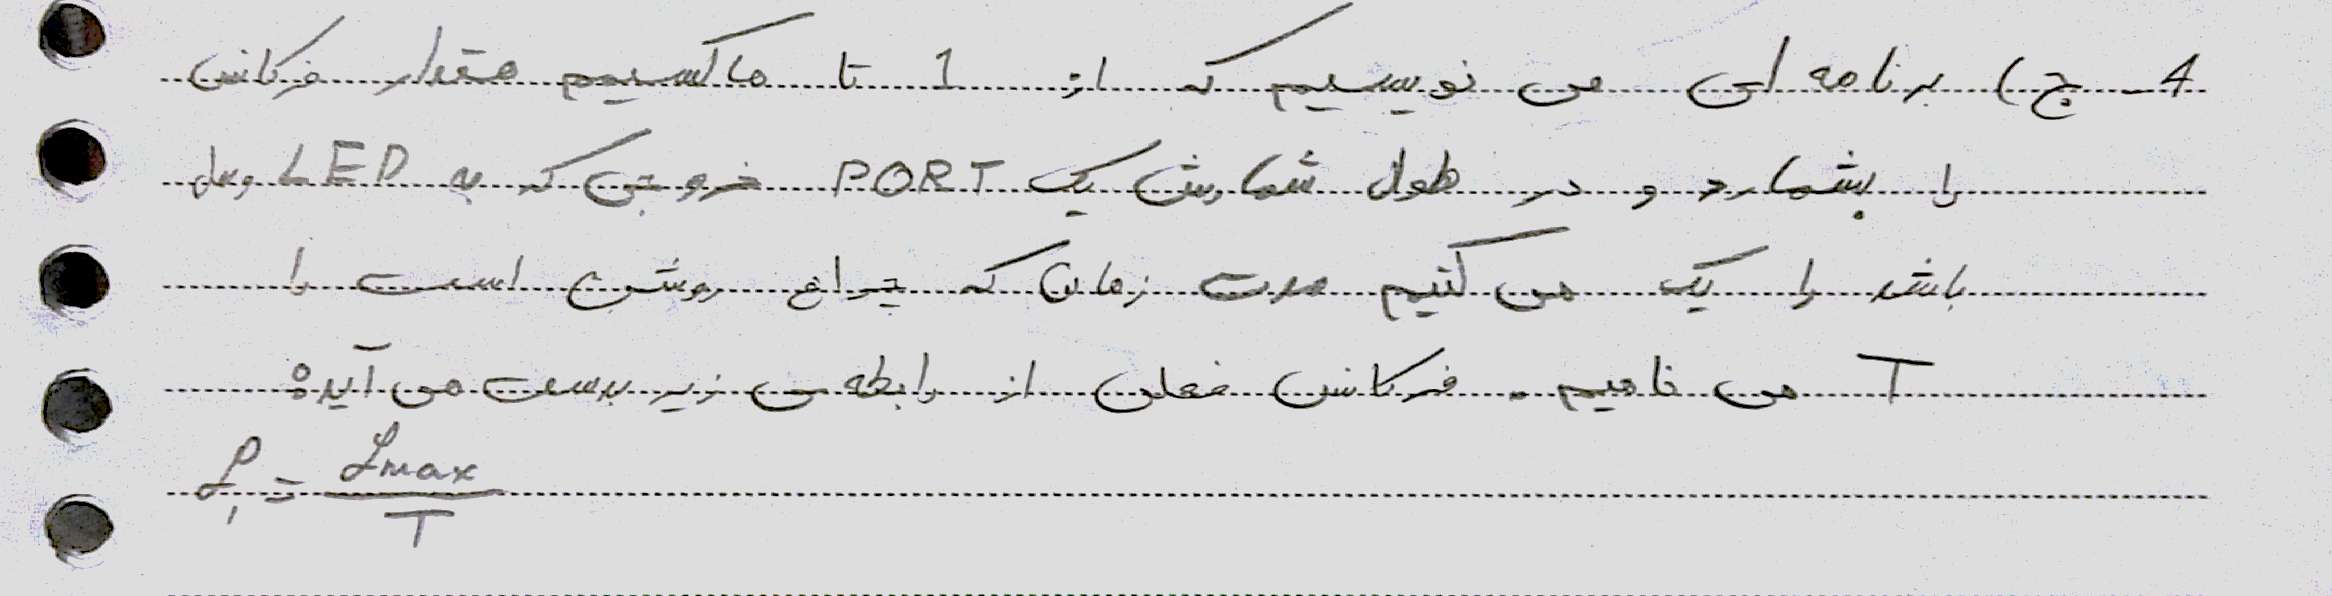 4_ ج) برنامه ای می نویسیم که از 1 تا ماکسیمم مقدار فرکانس
را بشمارد و در طول شمارش یک PORT خروجی که به LED وصل
باشد را یک می کنیم مدت زمان که چراغ روشن است را
T می نامیم. فرکانس فعلی از رابطه ی زیر بدست می آید:
f₁ = fmax / T